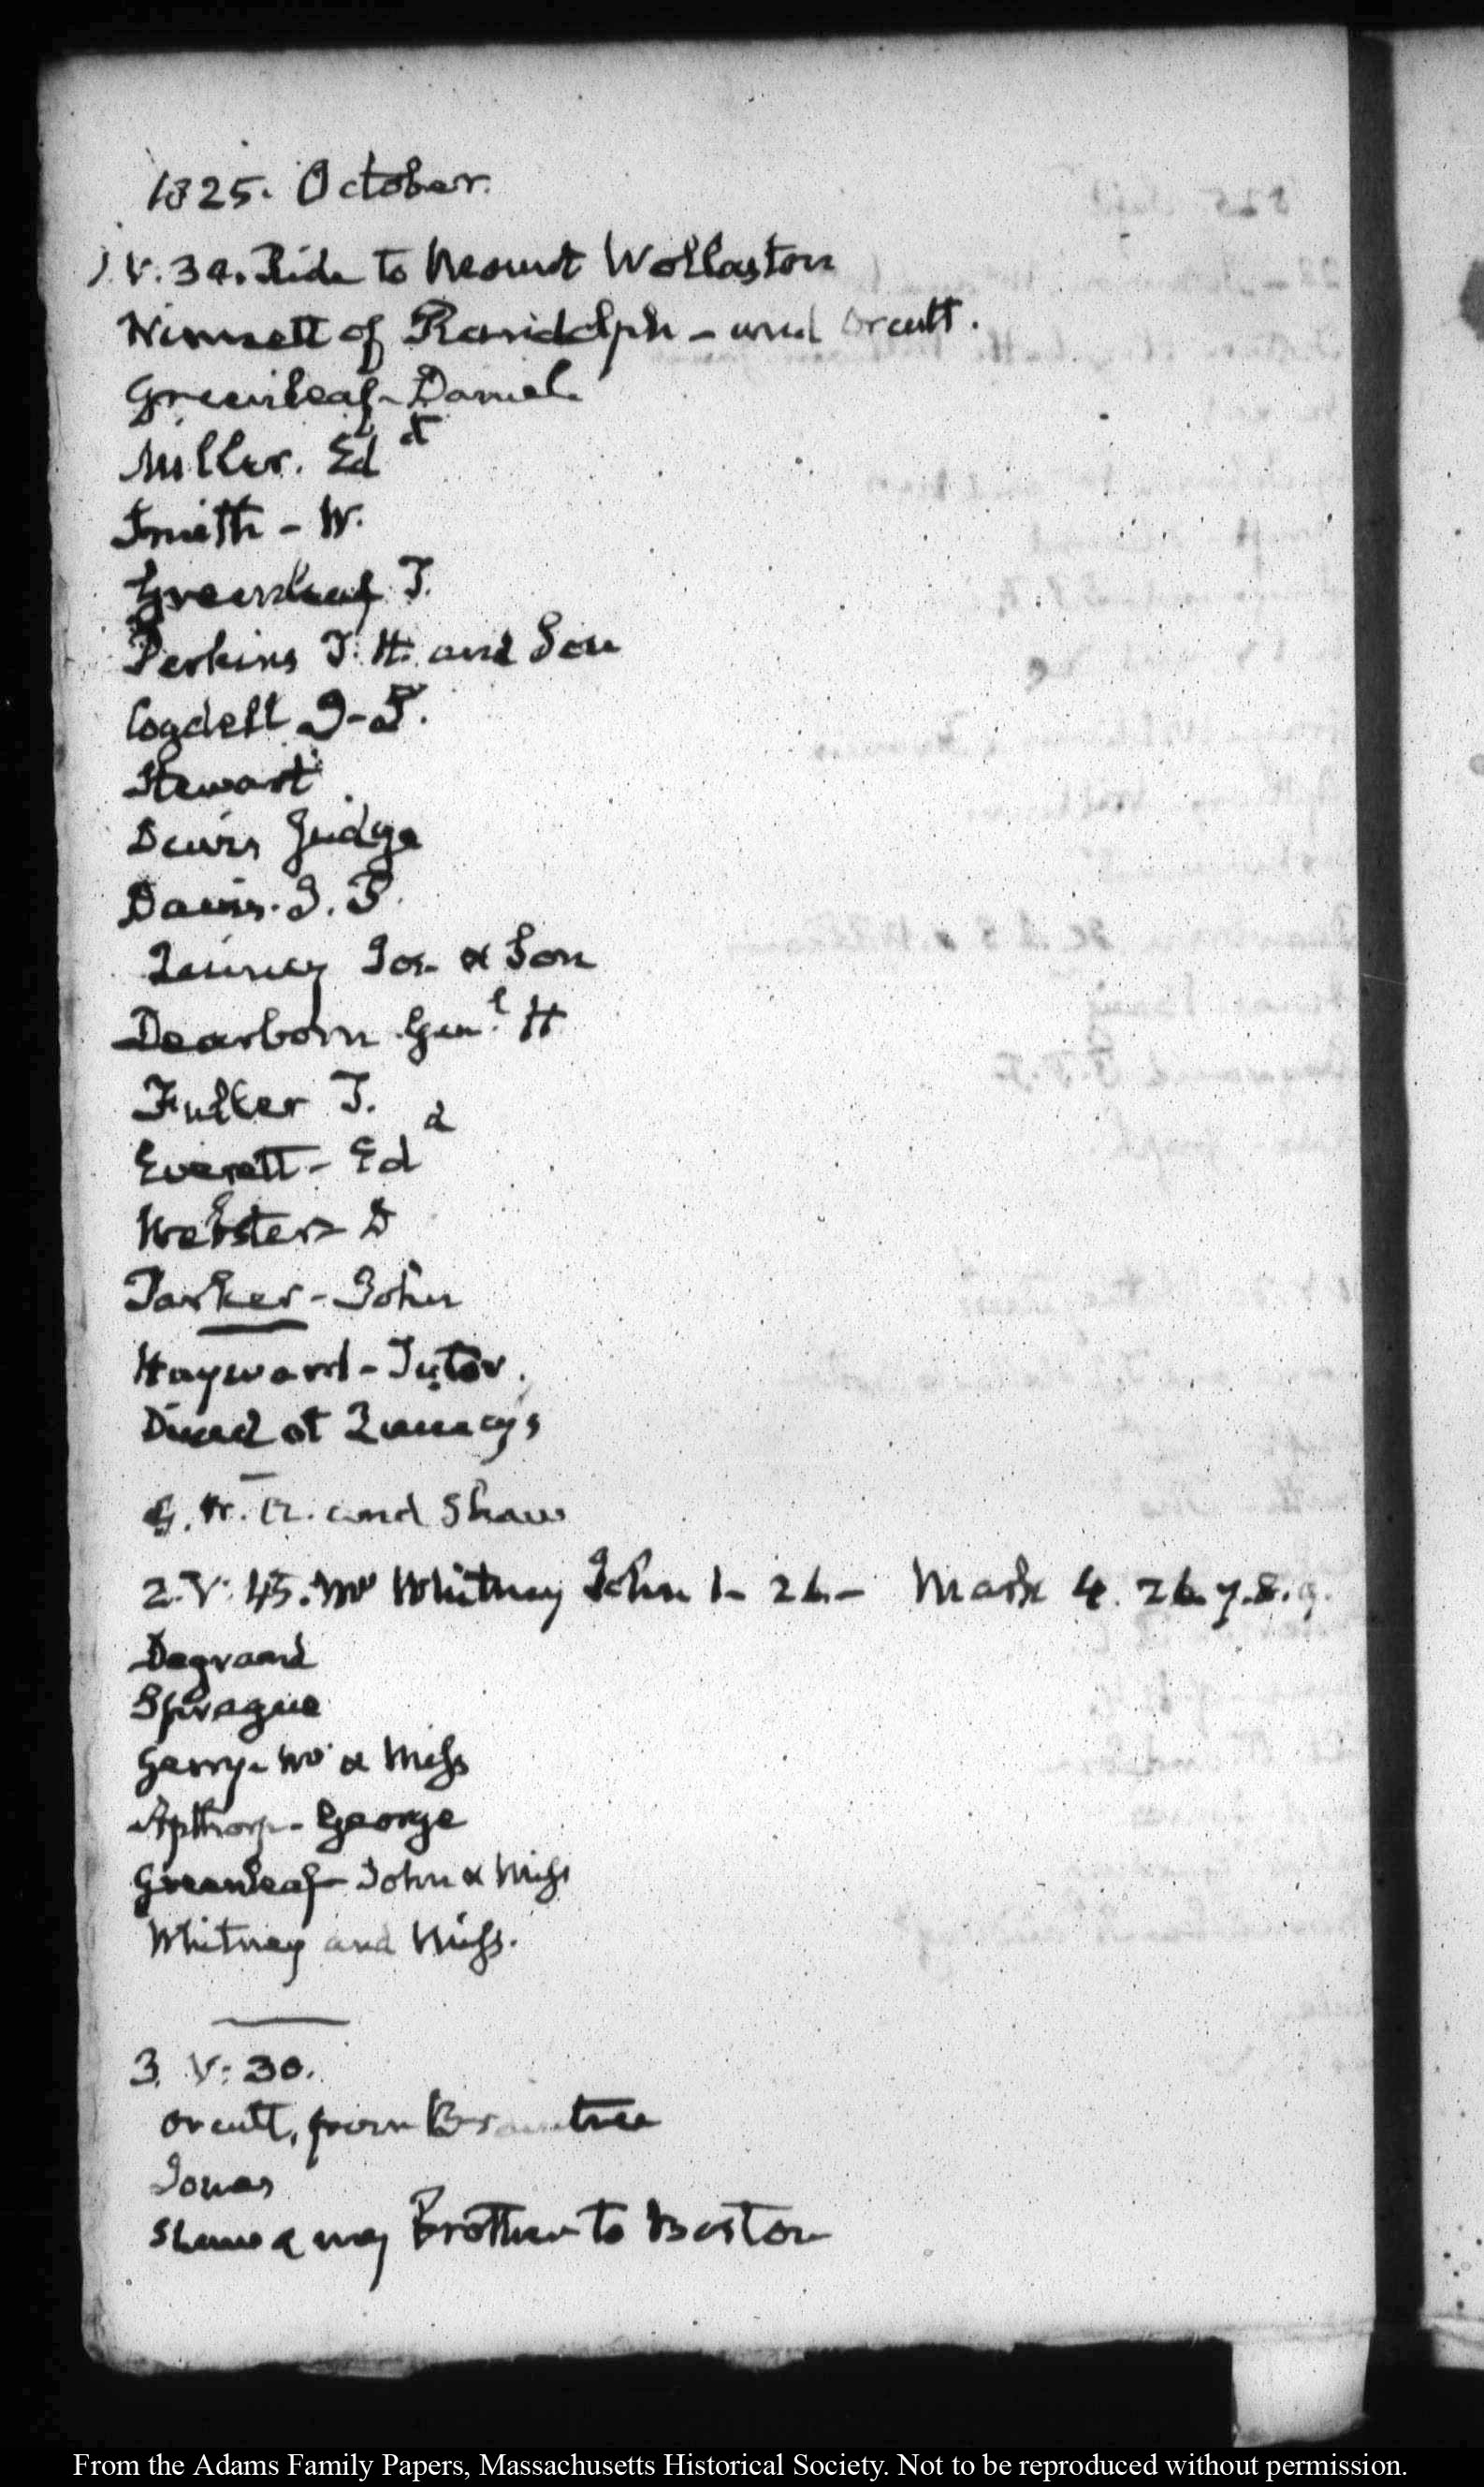 1825. October.
1. V. 30. Ride to Mount Wollaston
of Randolph - and Orcutt.
Greenleaf - Daniel
Miller. Ed
Smith - W.
Greenleaf T.
Perkins T. H. and Son
Cogdell J-S.
Stewart
Davis Judge
Davis. J. P.
Quincy Jos. & Son
Dearborn Genl. H
Fuller T.
Everett - Edd
Webster - D
Parker - John
Hayward - Tutor.
Dined at Quincys
G. W. A. and Shaw
2. V: 45. Mr Whitney John 1- 26- Mark 4. 26. 7. 8. 9.
Degrand
Sprague
Gerry - Mr & Miss
Apthorp - George
Greenleaf - John & Miss
Whitney and Miss.
3. V: 30.
Orcutt, from Braintree
Jones
Shaw & my Brother to Boston
From the Adams Family Papers, Massachusetts Historical Society. Not to be reproduced without permission.